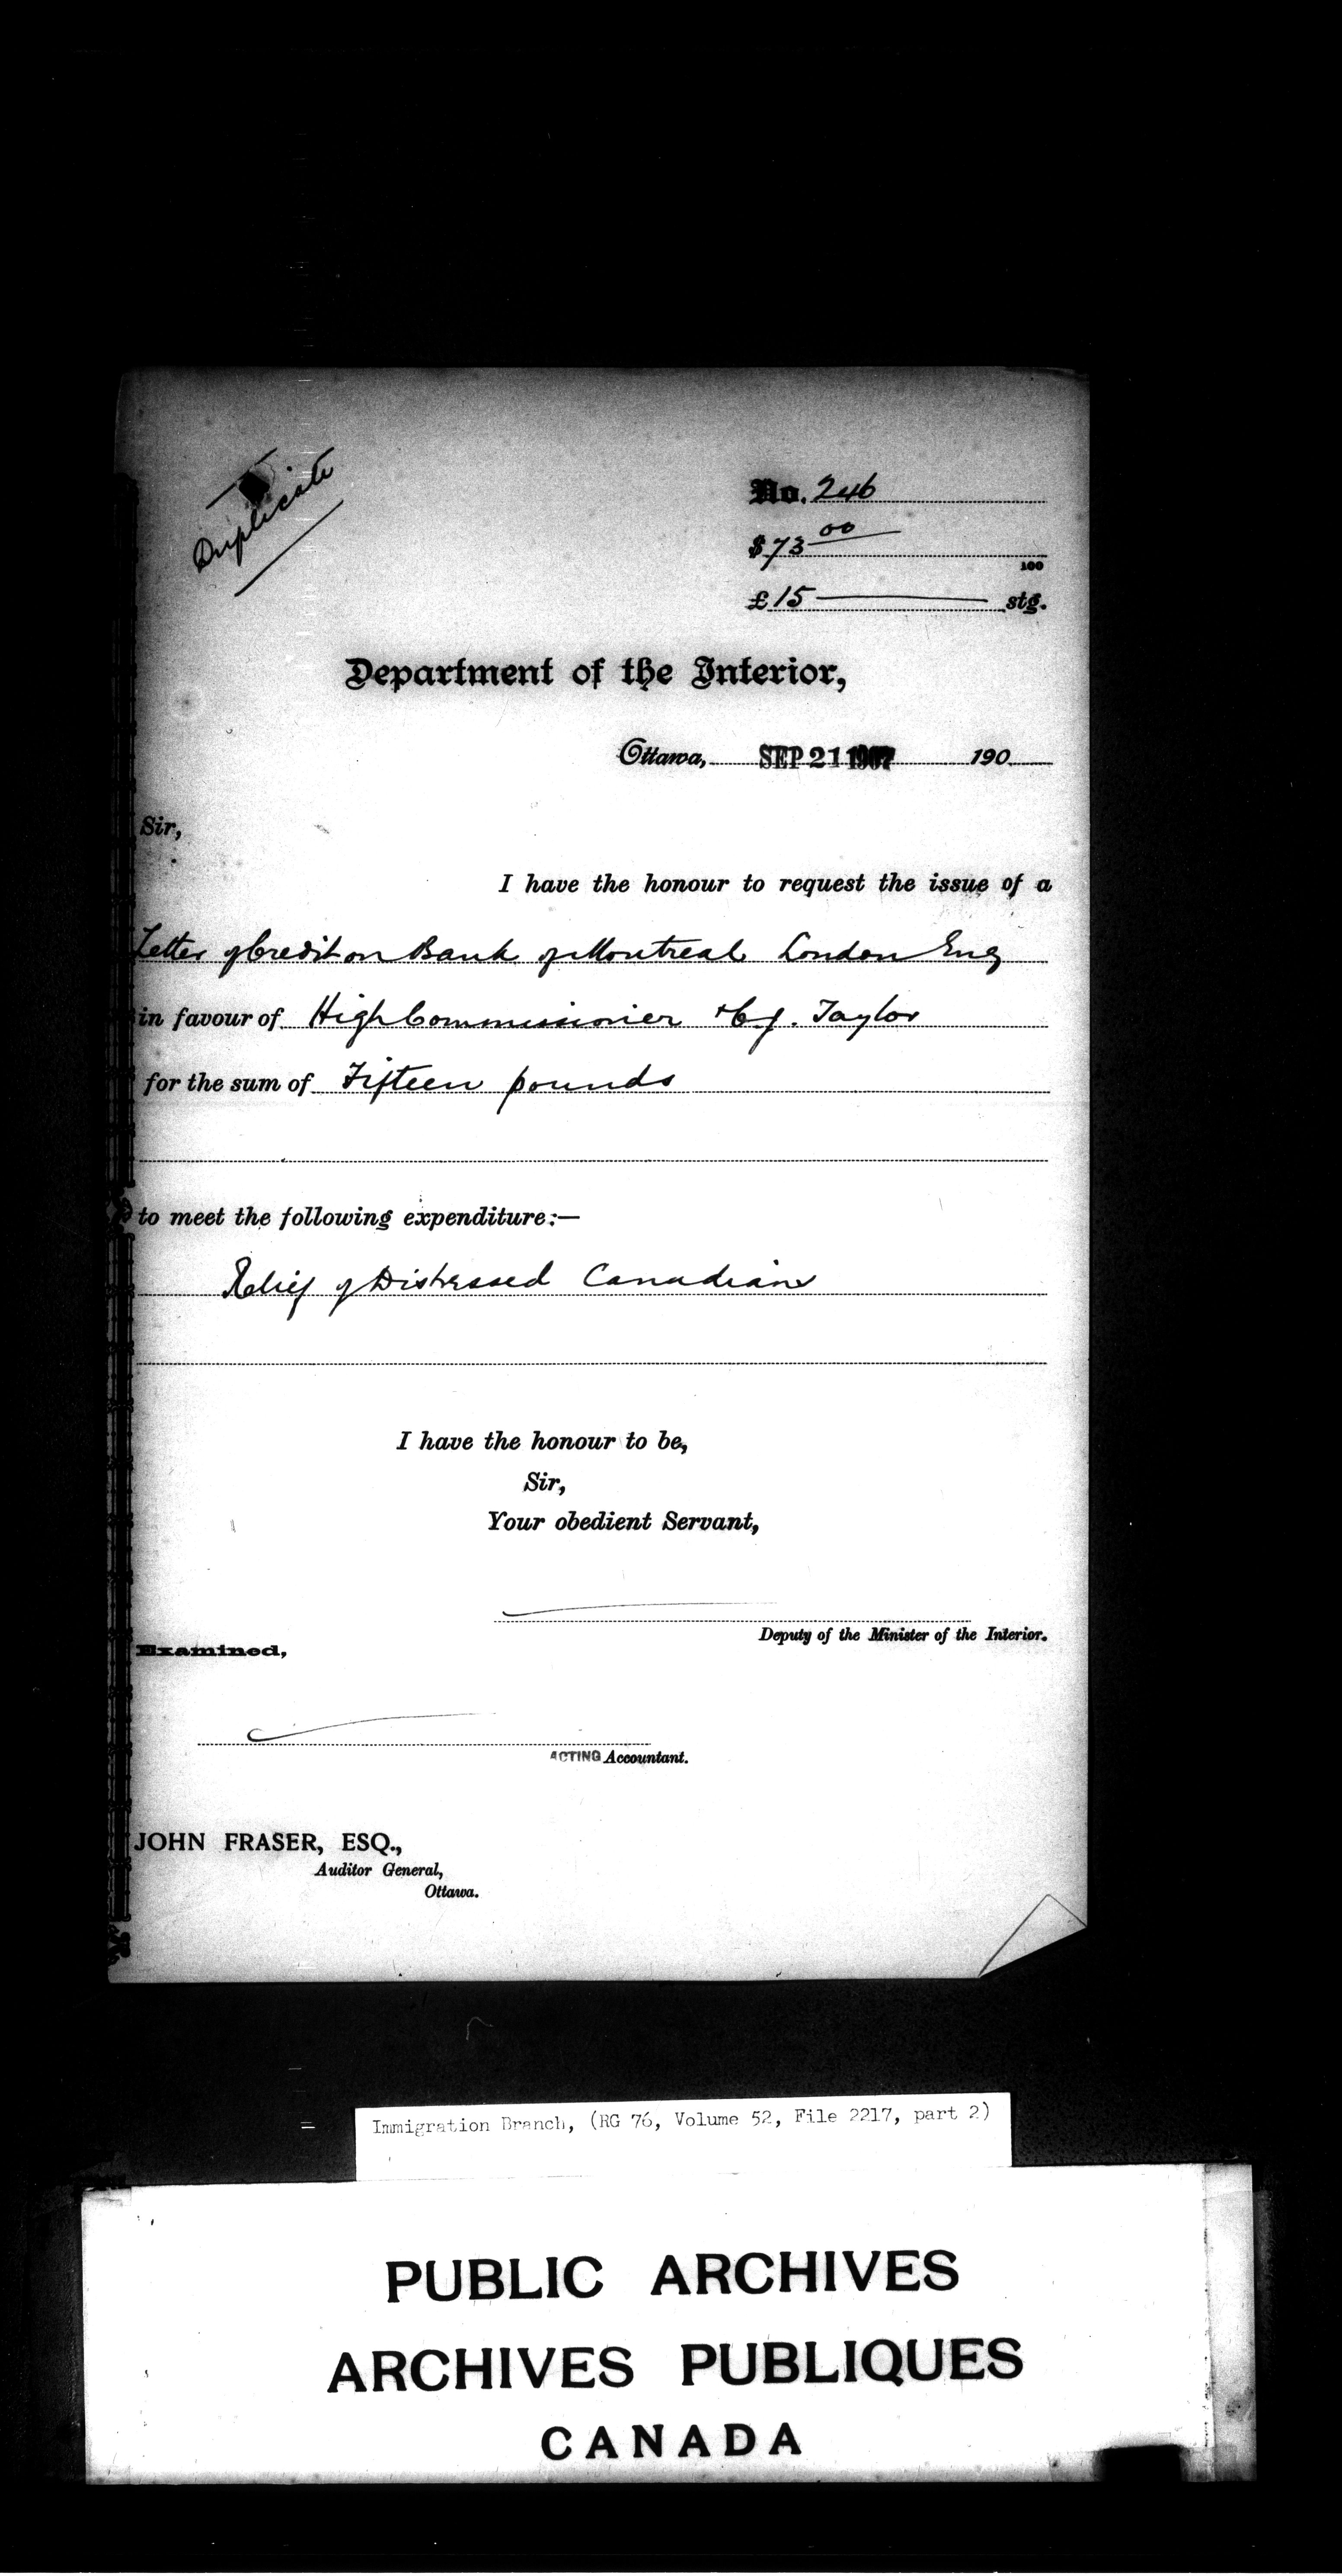 Duplicate
No. 246
$73 00
100
£15 stg.
Department of the Interior,
Ottawa, SEP 21 1907 190
Sir,
I have the honour to request the issue of a
Letter of Credit on Bank of Montreal London Eng
in favour of High Commissioner & C.J. Taylor
for the sum of Fifteen pounds
to meet the following expenditure:—
Relief of Distressed Canadian
I have the honour to be,
Sir,
Your obedient Servant,
Deputy of the Minister of the Interior.
Examined,
ACTING Accountant.
JOHN FRASER, ESQ.,
Auditor General,
Ottawa.
Immigration Branch, (RG 76, Volume 52, File 2217, part 2)
PUBLIC ARCHIVES
ARCHIVES PUBLIQUES
CANADA